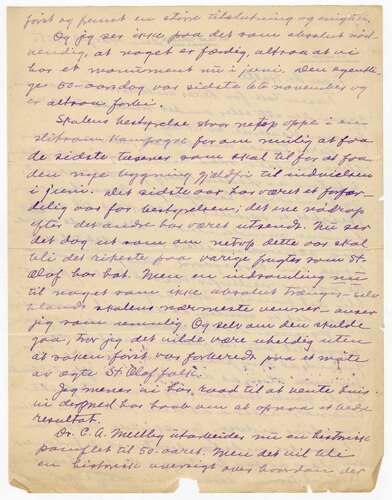 først og fremst en større tilslutning og enighet.
Og jeg ser ikke paa det som absolut nød-
vendig, at noget er færdig, altsaa at vi
har et monument nu i juni. Den egentli-
ge 50-aarsdag var sidste 6te november og
er altsaa forbi.
Skolens bestyrelse staar netop oppe i en
slitsom kampagne for om mulig at faa
de sidste tusener som skal til for at faa
den nye bygning gjældfri til indvielsen
i juni. Det sidste aar har været et forfær-
delig aar for bestyrelsen; det ene nødrop
efter det andre har været utsendt. Nu ser
det dog ut som om netop dette aar skal
bli det rikeste paa varige frugter som St.
Olaf har hat. Men en indsamling nu
til noget som ikke absolut trænges – selv
blandt skolens nærmeste venner – anser
jeg som umulig. Og selv om den skulde
gaa, tror jeg det vilde være uheldig uten
at saken først var forberedt paa et møte
av ægte St. Olaf folk.
Jeg mener vi har raad til at vente hvis
vi dermed har haab om at opnaa et bedre
resultat.
Dr. C. A. Mellby utarbeider nu en historisk
pamflet til 50-aaret. Men det vil bli
en historisk oversigt over hvordan der